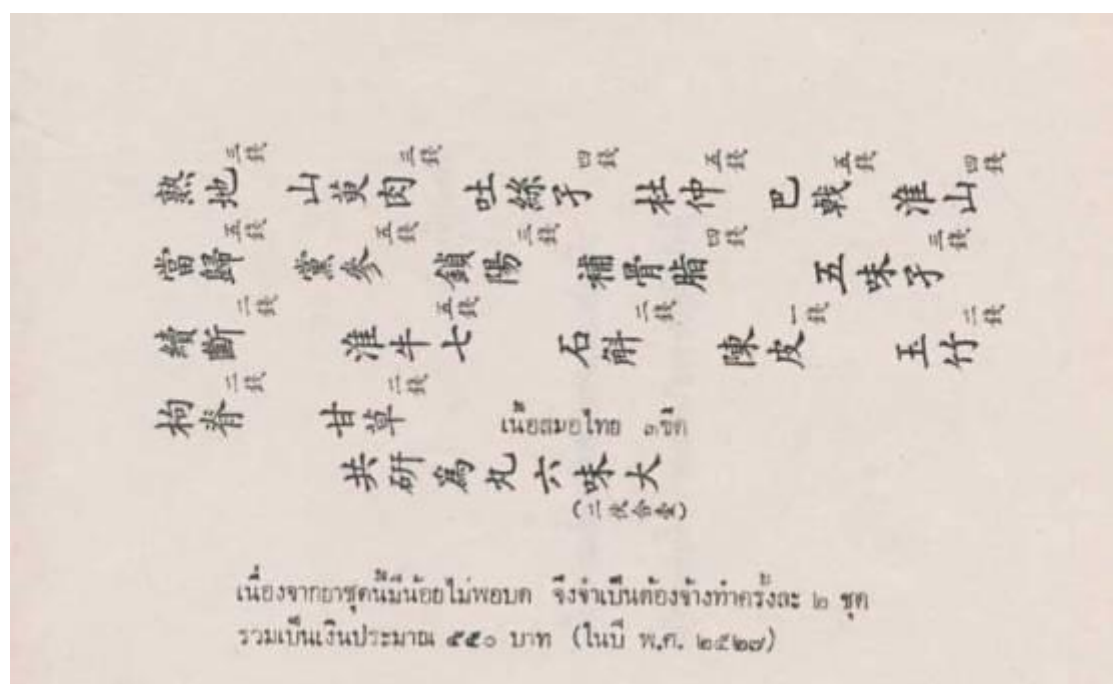 熟地三錢 山萸肉三錢 吐絲子四錢 杜仲五錢 巴戟五錢 淮山四錢
當歸五錢 黨參五錢 鎖陽三錢 補骨脂四錢 五味子三錢
續斷二錢 淮牛七五錢 石斛二錢 陳皮一錢 玉竹二錢
枸脊二錢 甘草二錢 เนื้อสมอไทย ๓ขีด
共研為丸六味大
เนื่องจากยาชุดนี้มีน้อยไม่พอบด จึงจำเป็นต้องจ้างทำครั้งละ ๒ ชุด
รวมเป็นเงินประมาณ ๕๕๐ บาท (ในปี พ.ศ. ๒๕๒๗)